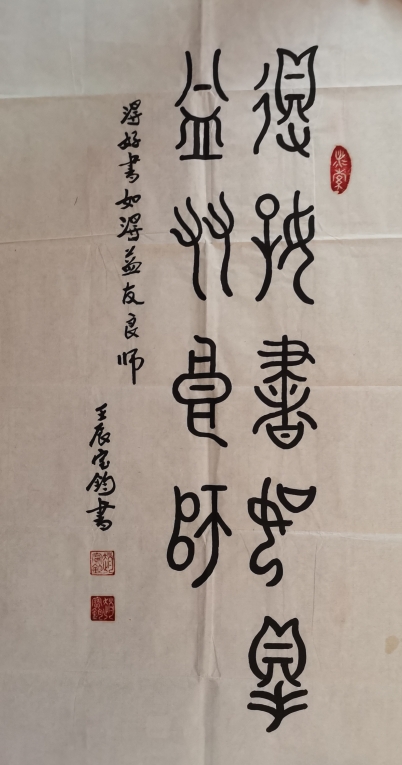 得好书如得
益友良师
得好書如得益友良师
壬辰宝钧書